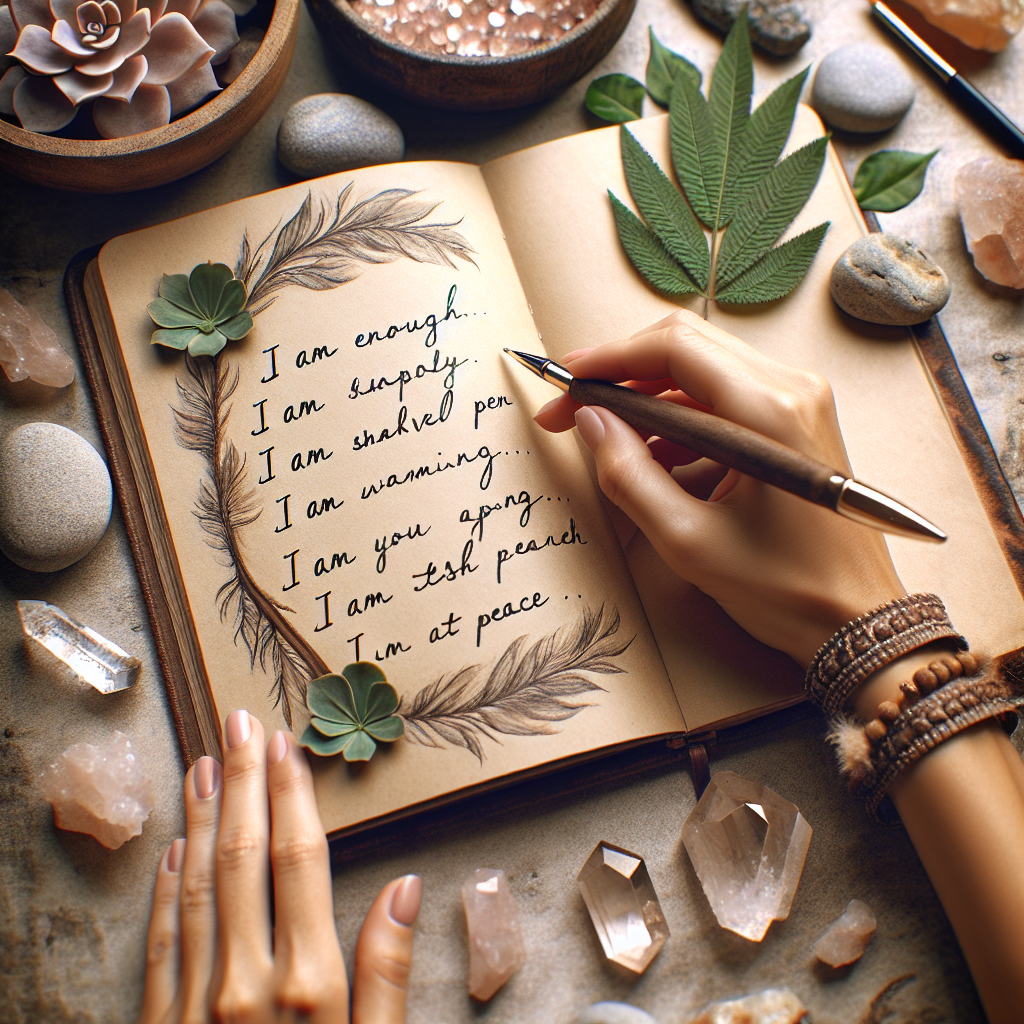 I am enough...
I am
I am shakvel pen
I am warming...
I am you apong...
I am tesh peanch
I,m at peace ..